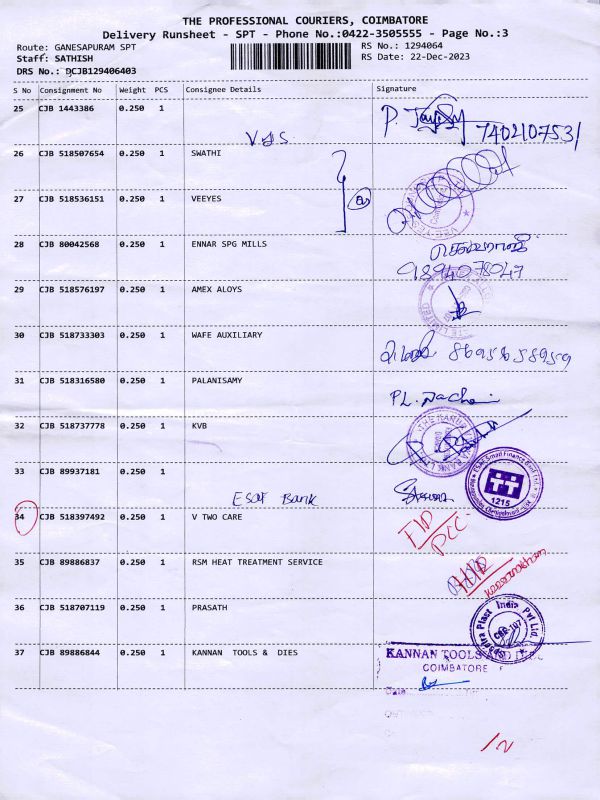 THE PROFESSIONAL COURIERS, COIMBATORE
Delivery Runsheet - SPT - Phone No.:0422-3505555 - Page No.:3
Route: GANESAPURAM SPT
Staff: SATHISH
DRS No.: DCJB129406403
RS No.: 1294064
RS Date: 22-Dec-2023
S No Consignment No Weight PCS Consignee Details Signature
25 CJB 1443386 0.250 1
7402107531
26 CJB 518507654 0.250 1 SWATHI
27 CJB 518536151 0.250 1 VEEYES
28 CJB 80042568 0.250 1 ENNAR SPG MILLS
9894078047
29 CJB 518576197 0.250 1 AMEX ALOYS
30 CJB 518733303 0.250 1 WAFE AUXILIARY
8695658959
31 CJB 518316580 0.250 1 PALANISAMY
32 CJB 518737778 0.250 1 KVB
33 CJB 89937181 0.250 1
ESAF Bank
1215
34 CJB 518397492 0.250 1 V TWO CARE
35 CJB 89886837 0.250 1 RSM HEAT TREATMENT SERVICE
36 CJB 518707119 0.250 1 PRASATH
Plast India Pvt Ltd.
37 CJB 89886844 0.250 1 KANNAN TOOLS & DIES
KANNAN TOOLS AND
COIMBATORE